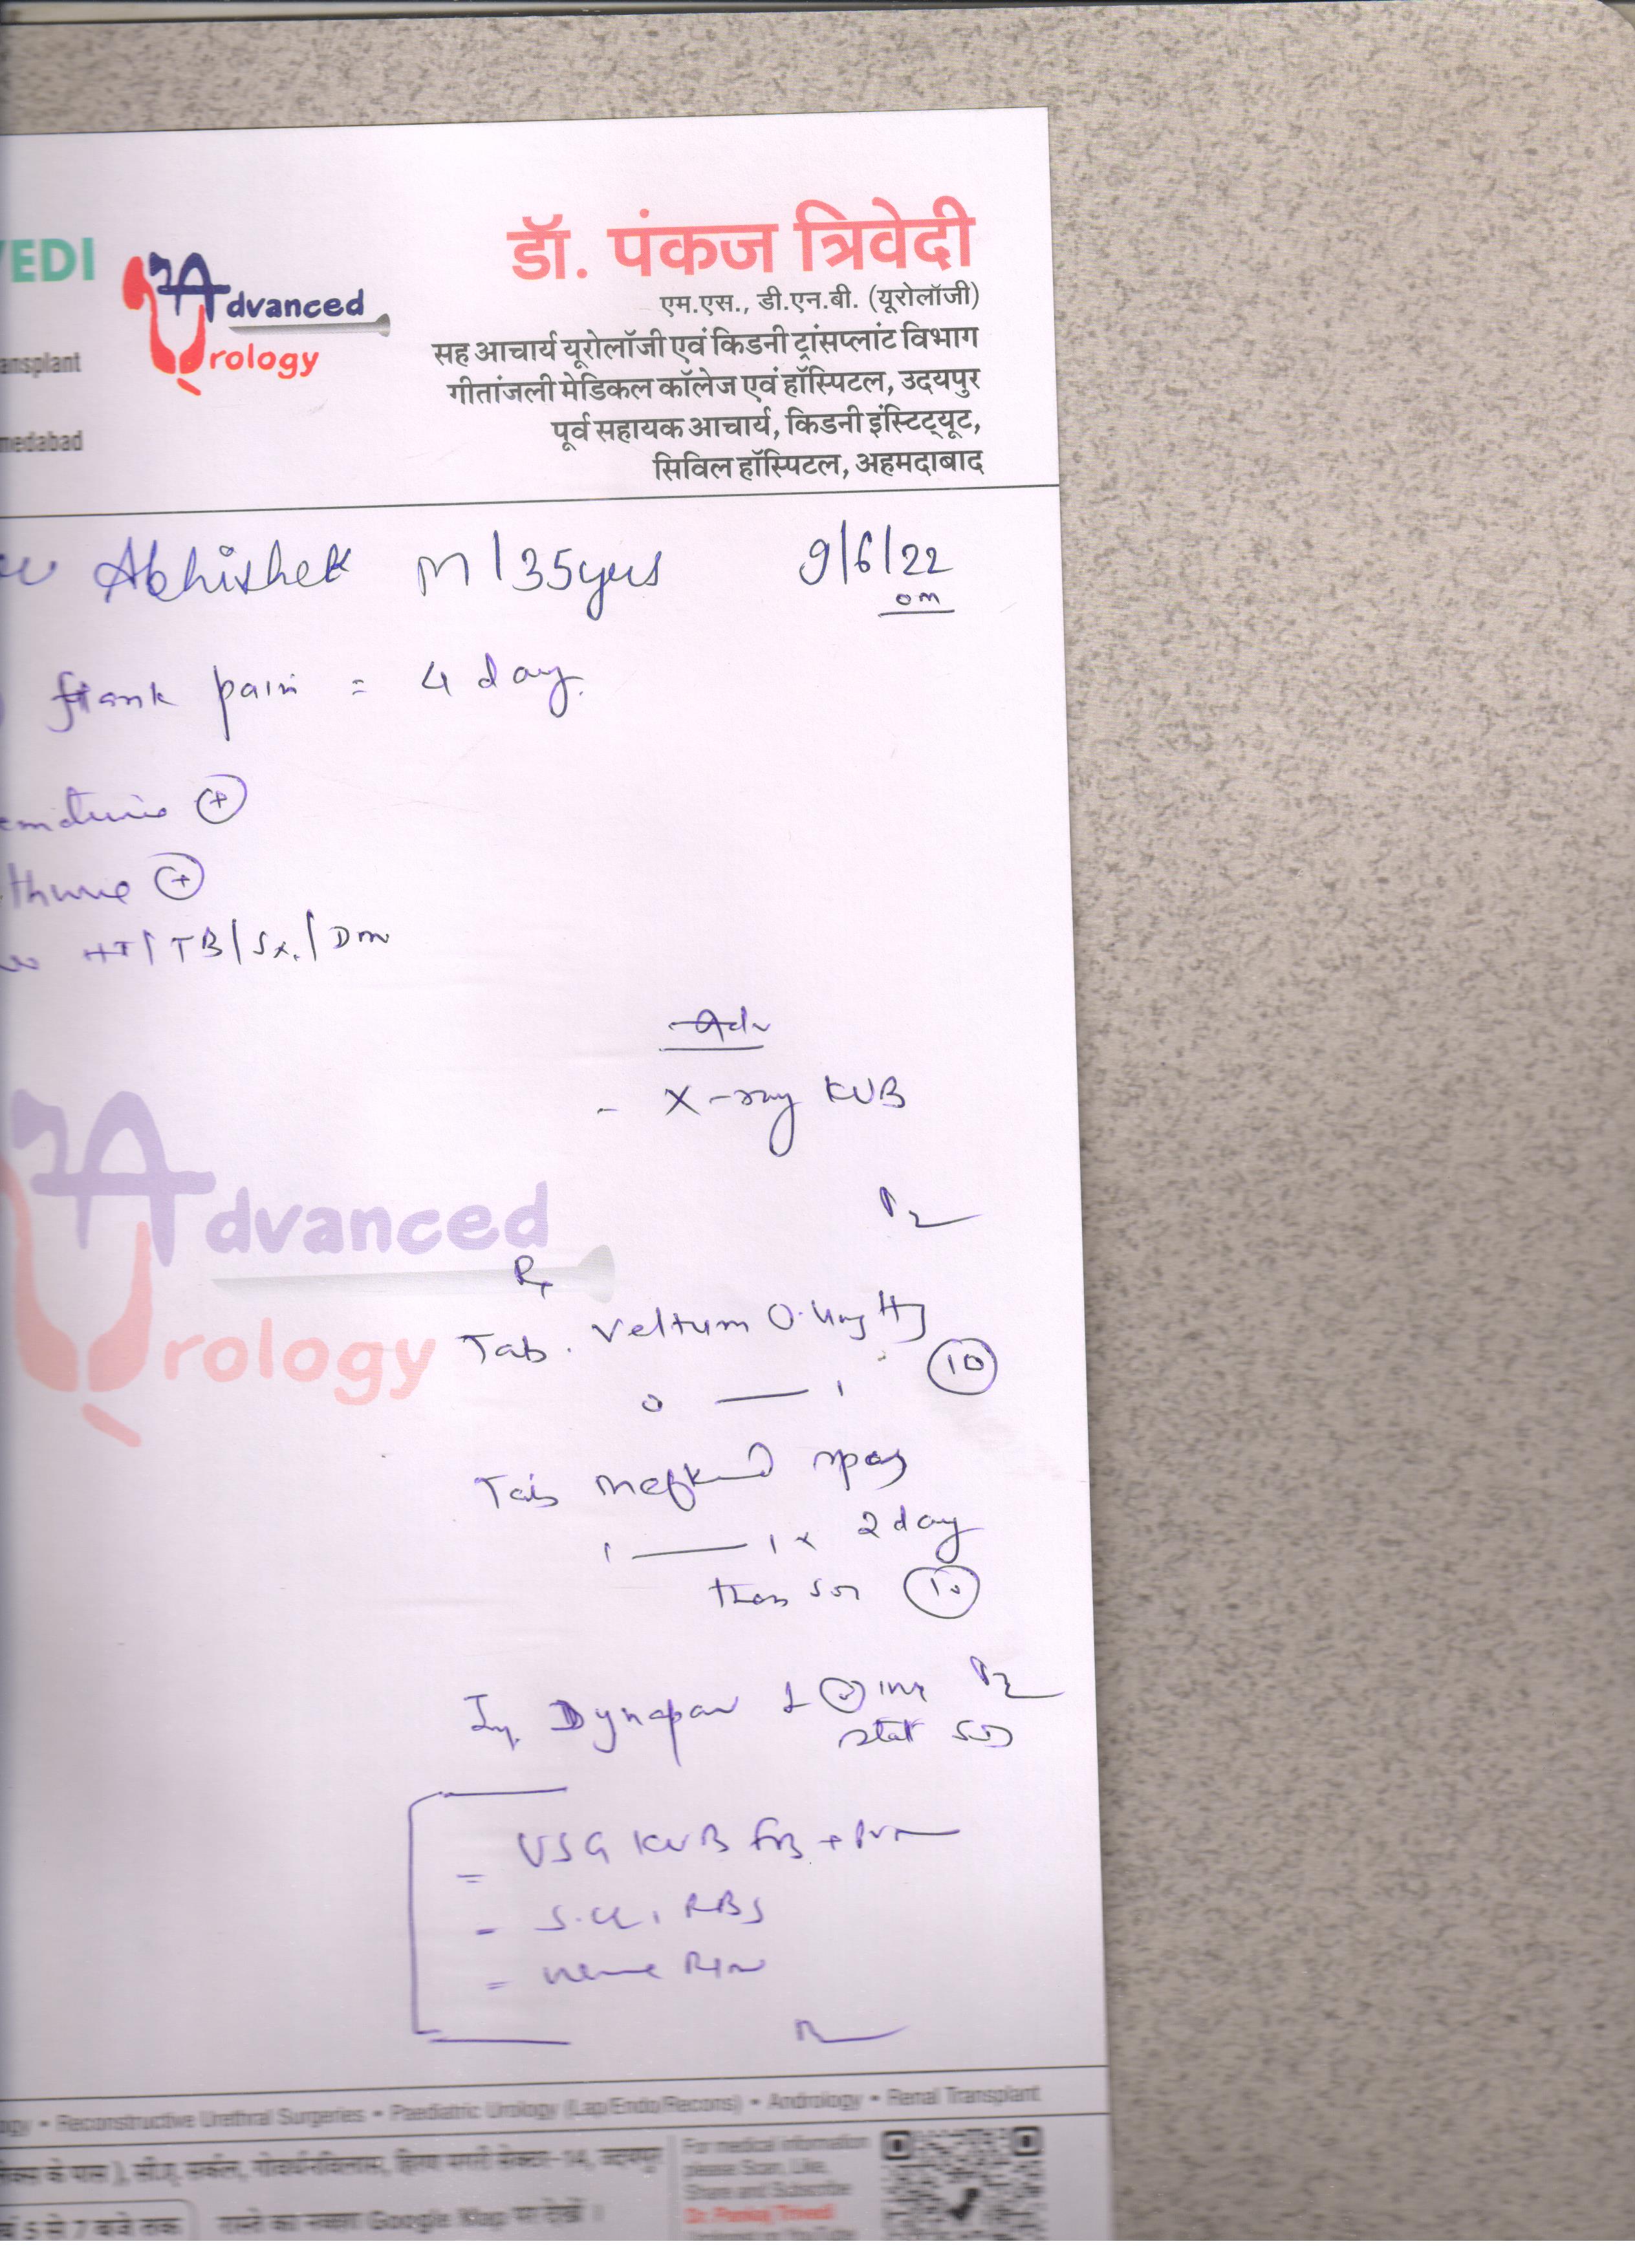 VEDI
Advanced
Urology
ansplant
medabad
डॉ. पंकज त्रिवेदी
एम.एस., डी.एन.बी. (यूरोलॉजी)
सह आचार्य यूरोलॉजी एवं किडनी ट्रांसप्लांट विभाग
गीतांजली मेडिकल कॉलेज एवं हॉस्पिटल, उदयपुर
पूर्व सहायक आचार्य, किडनी इंस्टिट्यूट,
सिविल हॉस्पिटल, अहमदाबाद
Abhishek M/35yrs 9/6/22
flank pain = 4 day.
ematuria +
thuria +
HT/TB/Sx./Dm
Adv
- X-ray KUB
Advanced
Urology
Rx
Tab. Veltum 0.4mg 10
0 — 1
Tab Meftal spas
1 — 1 x 2 day
then sos 10
Inj. Dynapar 1 im
stat sos
= USG KUB +
- S.Cr, RBS
= urine R/m
ogy • Reconstructive Urethral Surgeries • Paediatric Urology (Lap/Endo/Recons) • Andrology • Renal Transplant
के पास ), सी.ए. सर्कल, गोवर्धनविलास, हिरण मगरी सेक्टर-14, उदयपुर
5 से 7 बजे तक
रास्ते का नक्शा Google Map पर देखें ।
For medical information
please Scan, Like,
Share and Subscribe
Dr. Pankaj Trivedi